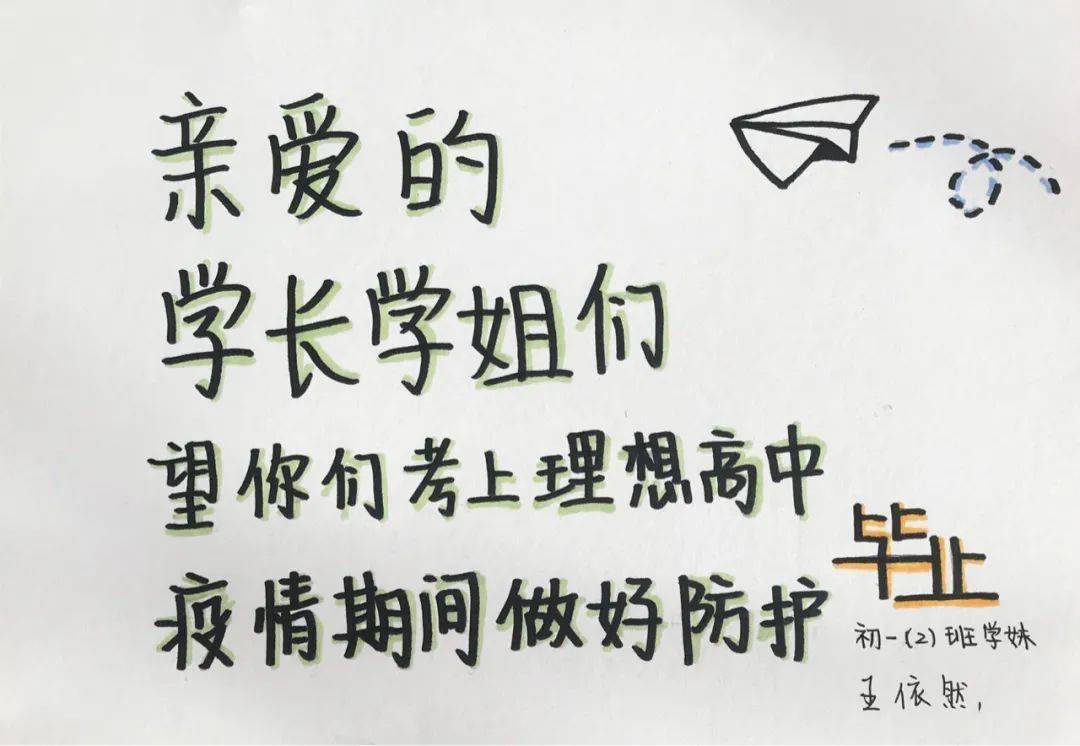 亲爱的
学长学姐们
望你们考上理想高中
疫情期间做好防护
毕业
初一(2)班学妹
王依然,